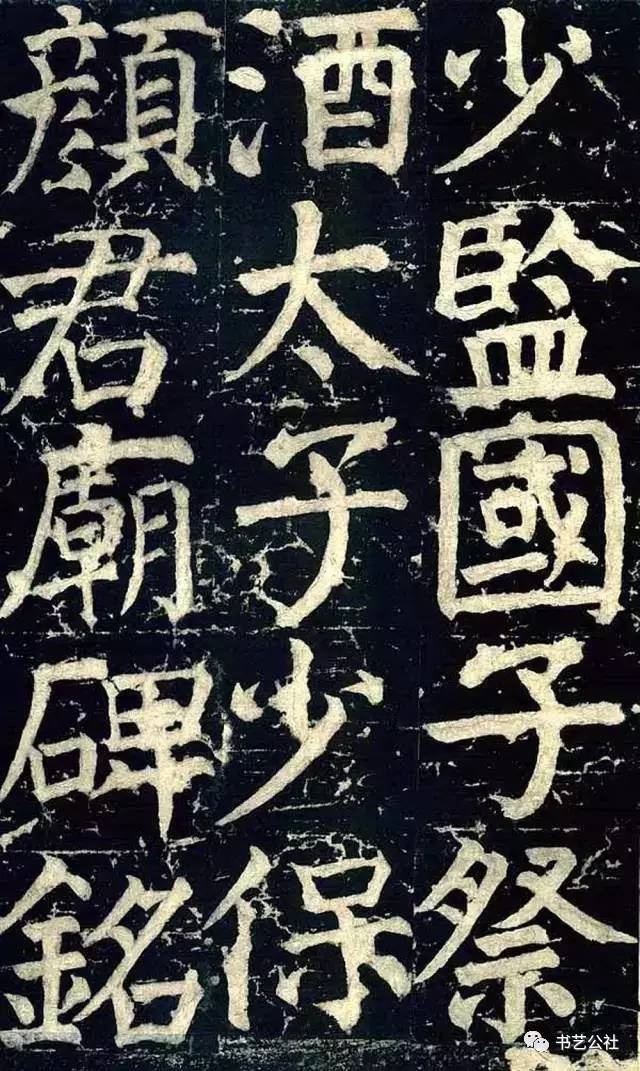 少監國子祭
酒太子少保
顏君廟碑銘
书艺公社